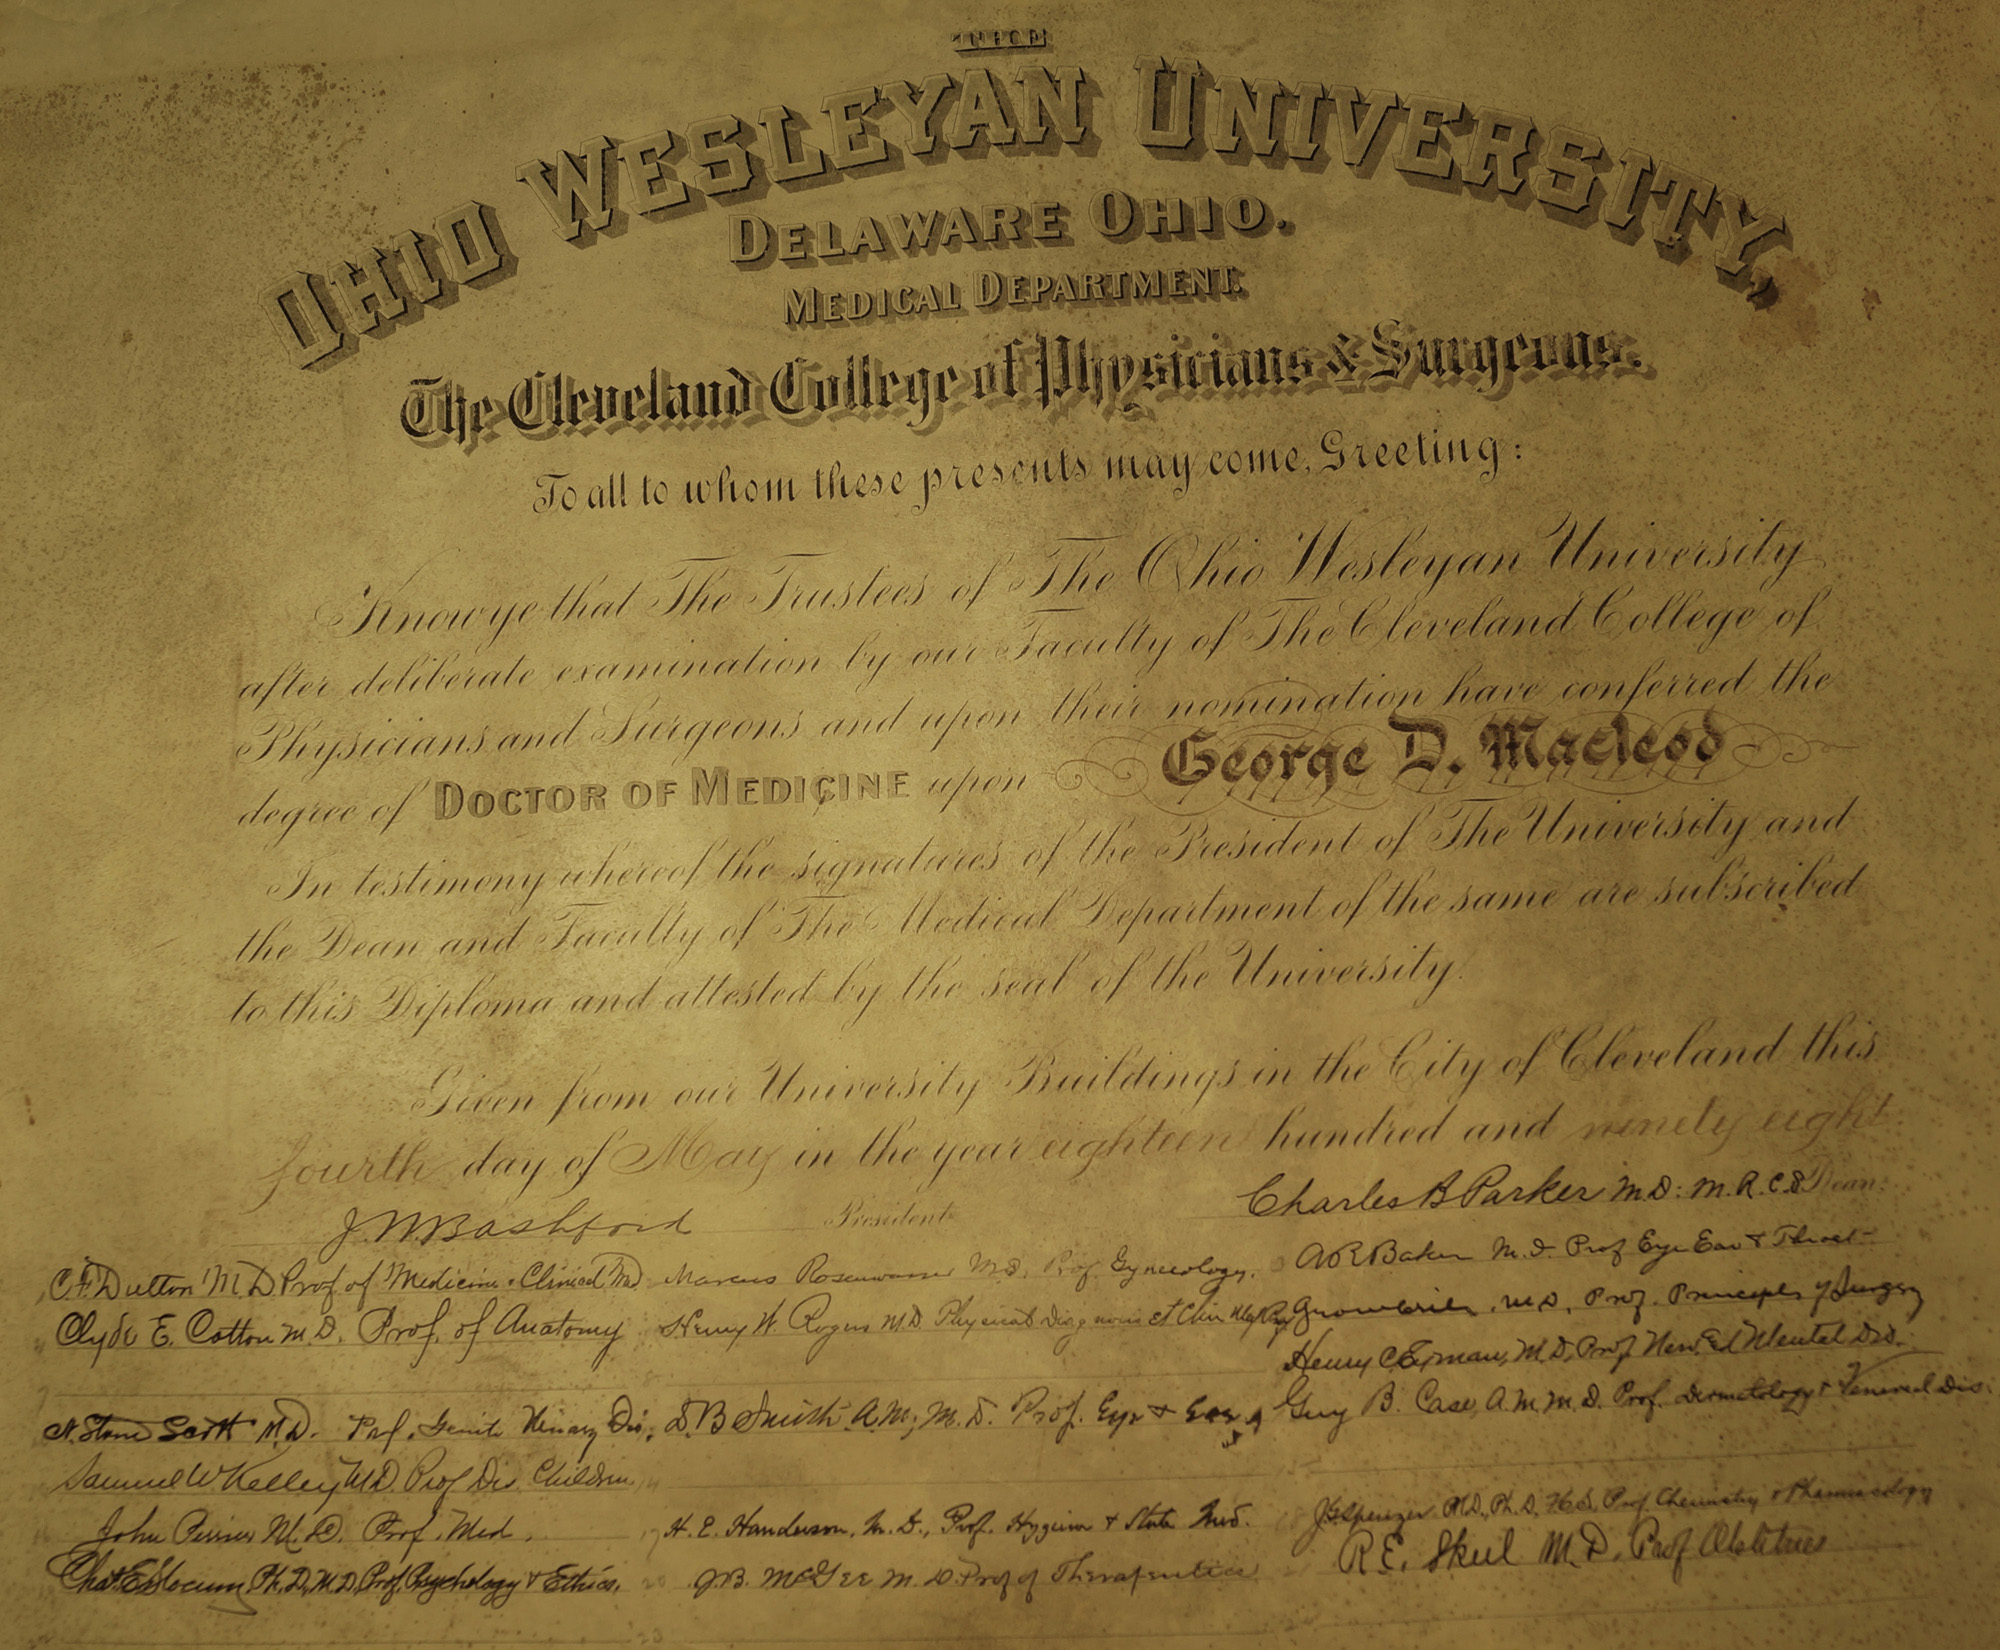 THE
OHIO WESLEYAN UNIVERSITY,
DELAWARE OHIO.
MEDICAL DEPARTMENT.
The Cleveland College of Physicians & Surgeons.
To all to whom these presents may come, Greeting:
Know ye that The Trustees of The Ohio Wesleyan University
after deliberate examination by our Faculty of The Cleveland College of
Physicians and Surgeons and upon their nomination have conferred the
degree of DOCTOR OF MEDICINE upon George D. Macleod
In testimony whereof the signatures of the President of The University and
the Dean and Faculty of The Medical Department of the same are subscribed
to this Diploma and attested by the seal of the University.
Given from our University Buildings in the City of Cleveland this
fourth day of May in the year eighteen hundred and ninety eight
J. W. Bashford President
Charles B Parker M.D: M.R.C.S Dean.
C. F. Dutton M.D. Prof of Medicine & Clinical Med
Marcus Rosenwasser M.D. Prof. Gynecology.
A R Baker M.D. Prof Eye Ear & Throat
Clyde E. Cotton M.D. Prof. of Anatomy
Henry W. Rogers M.D. Physical Diagnosis et Clin
M.D. Prof. Principles of Surgery
Henry C. Eyman, M.D. Prof Nerv. Ed Mental Dis.
N. Stone Scott M.D. Prof. Genito Urinary Dis.
D B Smith A.M, M.D. Prof. Eye & Ear
Guy B. Case, A.M. M.D. Prof. Dermatology & Venereal Dis.
Samuel W Kelley M.D. Prof Dis. Children
John Perrier M.D. Prof. Med.
H. E. Handerson, M.D., Prof. Hygiene & State Med.
J.G. Spenzer M.D, Ph.D, Prof Chemistry & Pharmacology
Chas. E. Slocum, Ph.D, M.D, Prof. Psychology & Ethics.
J.B. McGee M.D. Prof of Therapeutics
R. E. Skeel M.D. Prof Obstetrics